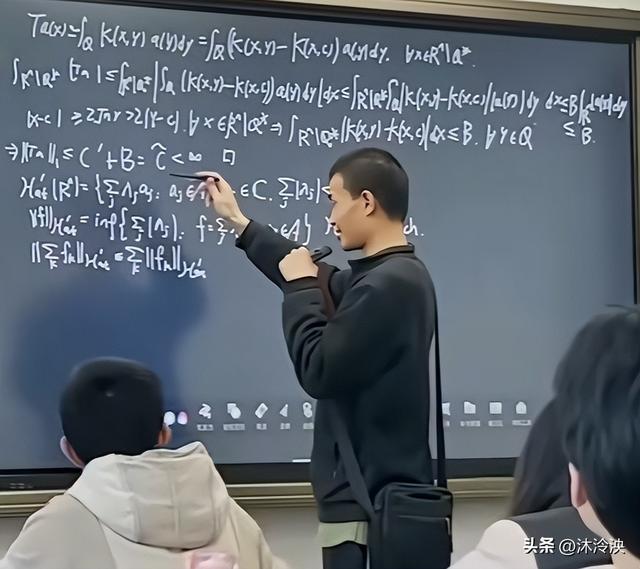 Ta(x)=∫_Q K(x,y) a(y)dy = ∫_Q (K(x,y)-K(x,c)) a(y)dy. ∀x∈R^n\Q*.
∫_{R^n\Q*} |Ta| ≤ ∫_{R^n\Q*} |∫_Q (K(x,y)-K(x,c)) a(y)dy| dx ≤ ∫_{R^n\Q*} ∫_Q |K(x,y)-K(x,c)| |a(y)| dy dx ≤ B ∫_Q |a(y)| dy ≤ B.
|x-c| ≥ 2√n r > 2|y-c| ∀x∈R^n\Q* ⇒ ∫_{R^n\Q*} |K(x,y)-K(x,c)| dx ≤ B. ∀y∈Q
⇒ ||Ta||_1 ≤ C'+B = C̃ < ∞ □
H'_at(R^n) = {Σ_j λ_j a_j : a_j ∈ ∈ C, Σ_j |λ_j| <
||f||_{H'_at} = inf {Σ_j |λ_j| : f = Σ_j ∈ A}
||Σ_k f_k||_{H'_at} ≤ Σ_k ||f_k||_{H'_at}
头条 @沐泠泱